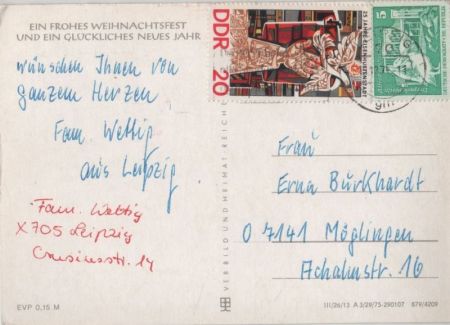 EIN FROHES WEIHNACHTSFEST
UND EIN GLÜCKLICHES NEUES JAHR
wünschen Ihnen von
ganzem Herzen
Fam. Wettig
aus Leipzig
Fam. Wettig
X705 Leipzig
Crusiusstr. 14
EVP 0,15 M
VEB BILD UND HEIMAT REICHENBACH
DDR 20
25 JAHRE EISENHÜTTENSTADT
5
Frau
Erna Burkhardt
O 7141 Möglingen
Achalmstr. 16
III/26/13 A 3/29/75-290107 679/4209